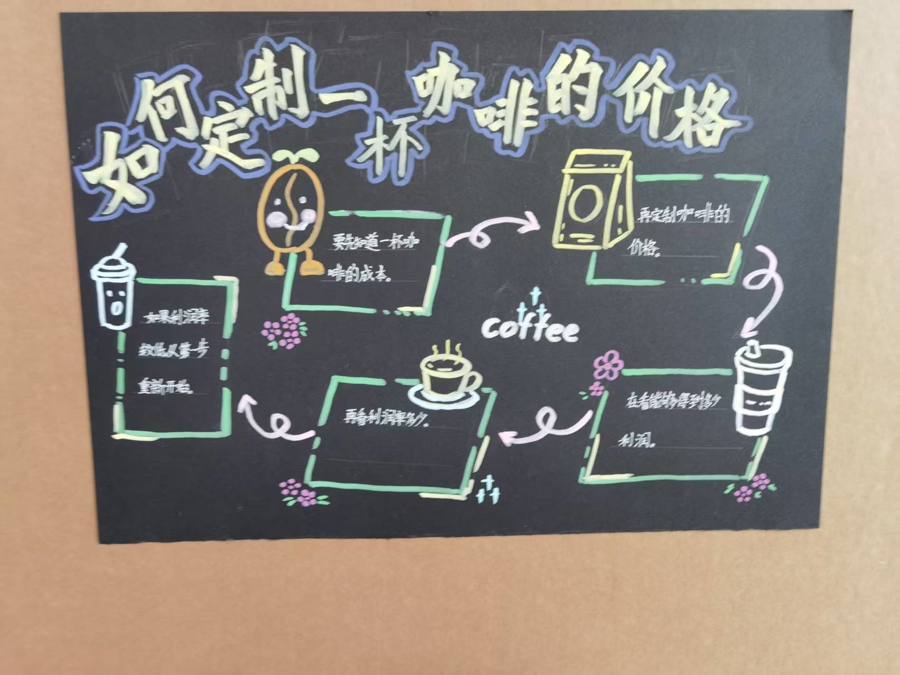 如何定制一杯咖啡的价格
要先知道一杯咖
啡的成本。
再定制咖啡的
价格。
coffee
在看能够得到多少
利润。
再看利润率多少。
如果利润率
较低从第一步
重新开始。